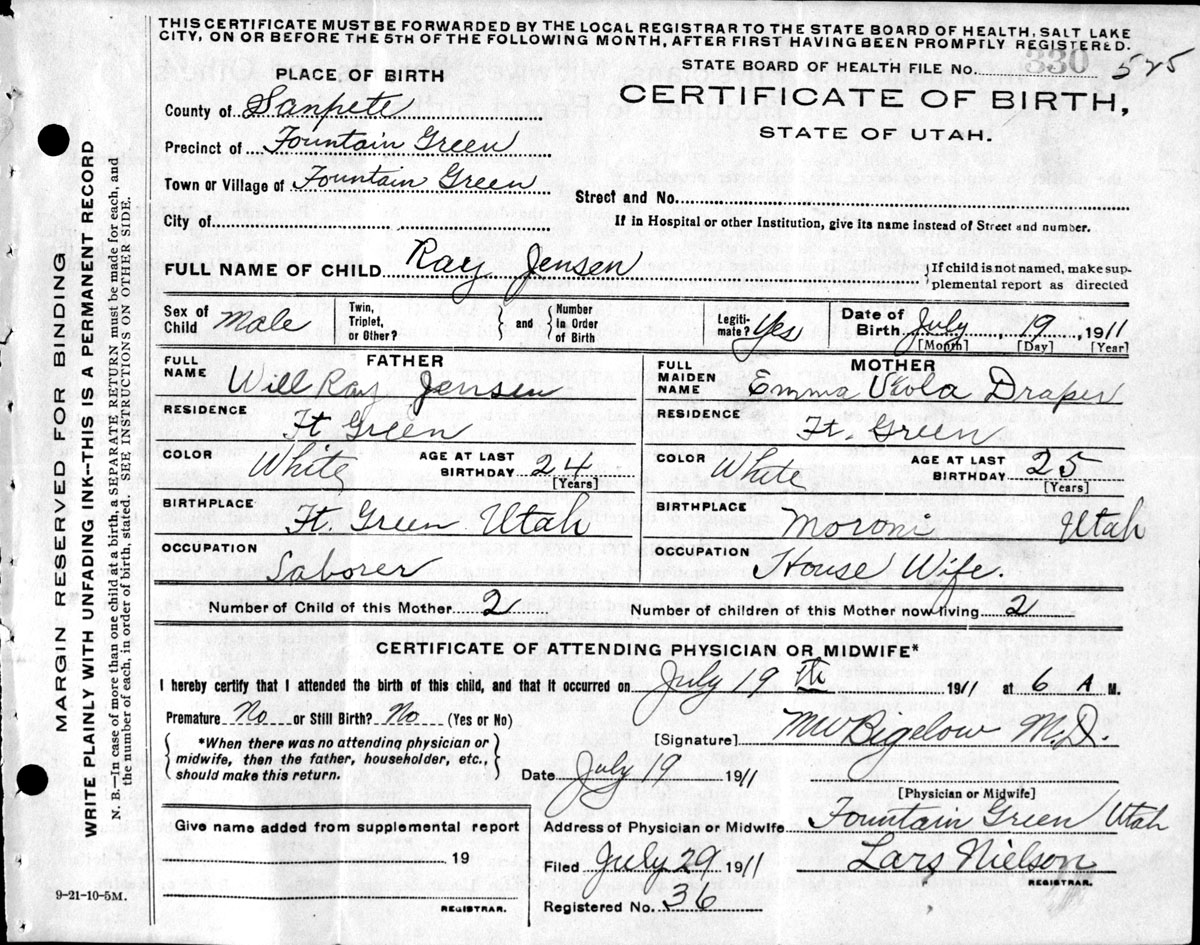 THIS CERTIFICATE MUST BE FORWARDED BY THE LOCAL REGISTRAR TO THE STATE BOARD OF HEALTH, SALT LAKE
CITY, ON OR BEFORE THE 5TH OF THE FOLLOWING MONTH, AFTER FIRST HAVING BEEN PROMPTLY REGISTERED.
STATE BOARD OF HEALTH FILE No. 330 525
PLACE OF BIRTH
CERTIFICATE OF BIRTH,
STATE OF UTAH.
County of Sanpete
Precinct of Fountain Green
Town or Village of Fountain Green
Street and No.
City of
If in Hospital or other Institution, give its name instead of Street and number.
FULL NAME OF CHILD Ray Jensen
If child is not named, make sup-
plemental report as directed
Sex of Child Male
Twin, Triplet, or Other?
and
Number in Order of Birth
Legiti-mate? Yes
Date of Birth July 19, 1911
[Month] [Day] [Year]
FATHER
FULL NAME Will Ray Jensen
RESIDENCE
Ft Green
COLOR White AGE AT LAST BIRTHDAY 24
[Years]
BIRTHPLACE
Ft. Green Utah
OCCUPATION
Laborer
MOTHER
FULL MAIDEN NAME Emma Viola Draper
RESIDENCE
Ft. Green
COLOR White AGE AT LAST BIRTHDAY 25
[Years]
BIRTHPLACE
Moroni Utah
OCCUPATION
House Wife.
Number of Child of this Mother 2 Number of children of this Mother now living 2
CERTIFICATE OF ATTENDING PHYSICIAN OR MIDWIFE*
I hereby certify that I attended the birth of this child, and that it occurred on July 19th 1911 at 6 A M.
Premature No or Still Birth? No (Yes or No)
*When there was no attending physician or
midwife, then the father, householder, etc.,
should make this return.
[Signature] MW Bigelow M.D.
Date July 19 1911
[Physician or Midwife]
Address of Physician or Midwife Fountain Green Utah
Give name added from supplemental report
19
REGISTRAR.
Filed July 29 1911 Lars Nielson
REGISTRAR.
Registered No. 36
9-21-10-5M.
MARGIN RESERVED FOR BINDING
WRITE PLAINLY WITH UNFADING INK--THIS IS A PERMANENT RECORD
N. B.—In case of more than one child at a birth, a SEPARATE RETURN must be made for each, and
the number of each, in order of birth, stated. SEE INSTRUCTIONS ON OTHER SIDE.